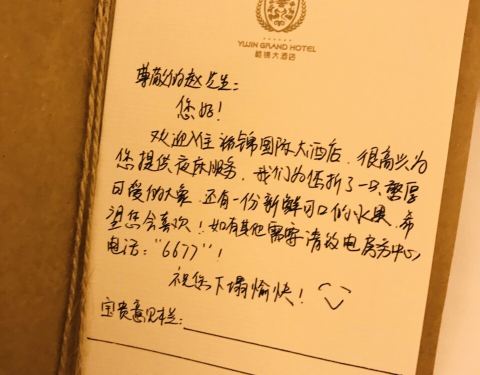 YUJIN GRAND HOTEL
锦大酒店
尊敬的赵先生:
您好!
欢迎入住裕锦国际大酒店,很高兴为
您提供夜床服务,我们为您折了一只憨厚
可爱的大象,还有一份新鲜可口的水果,希
望您会喜欢!如有其他需要请致电房务中心
电话:"6677"!
祝您下榻愉快!
宝贵意见栏: